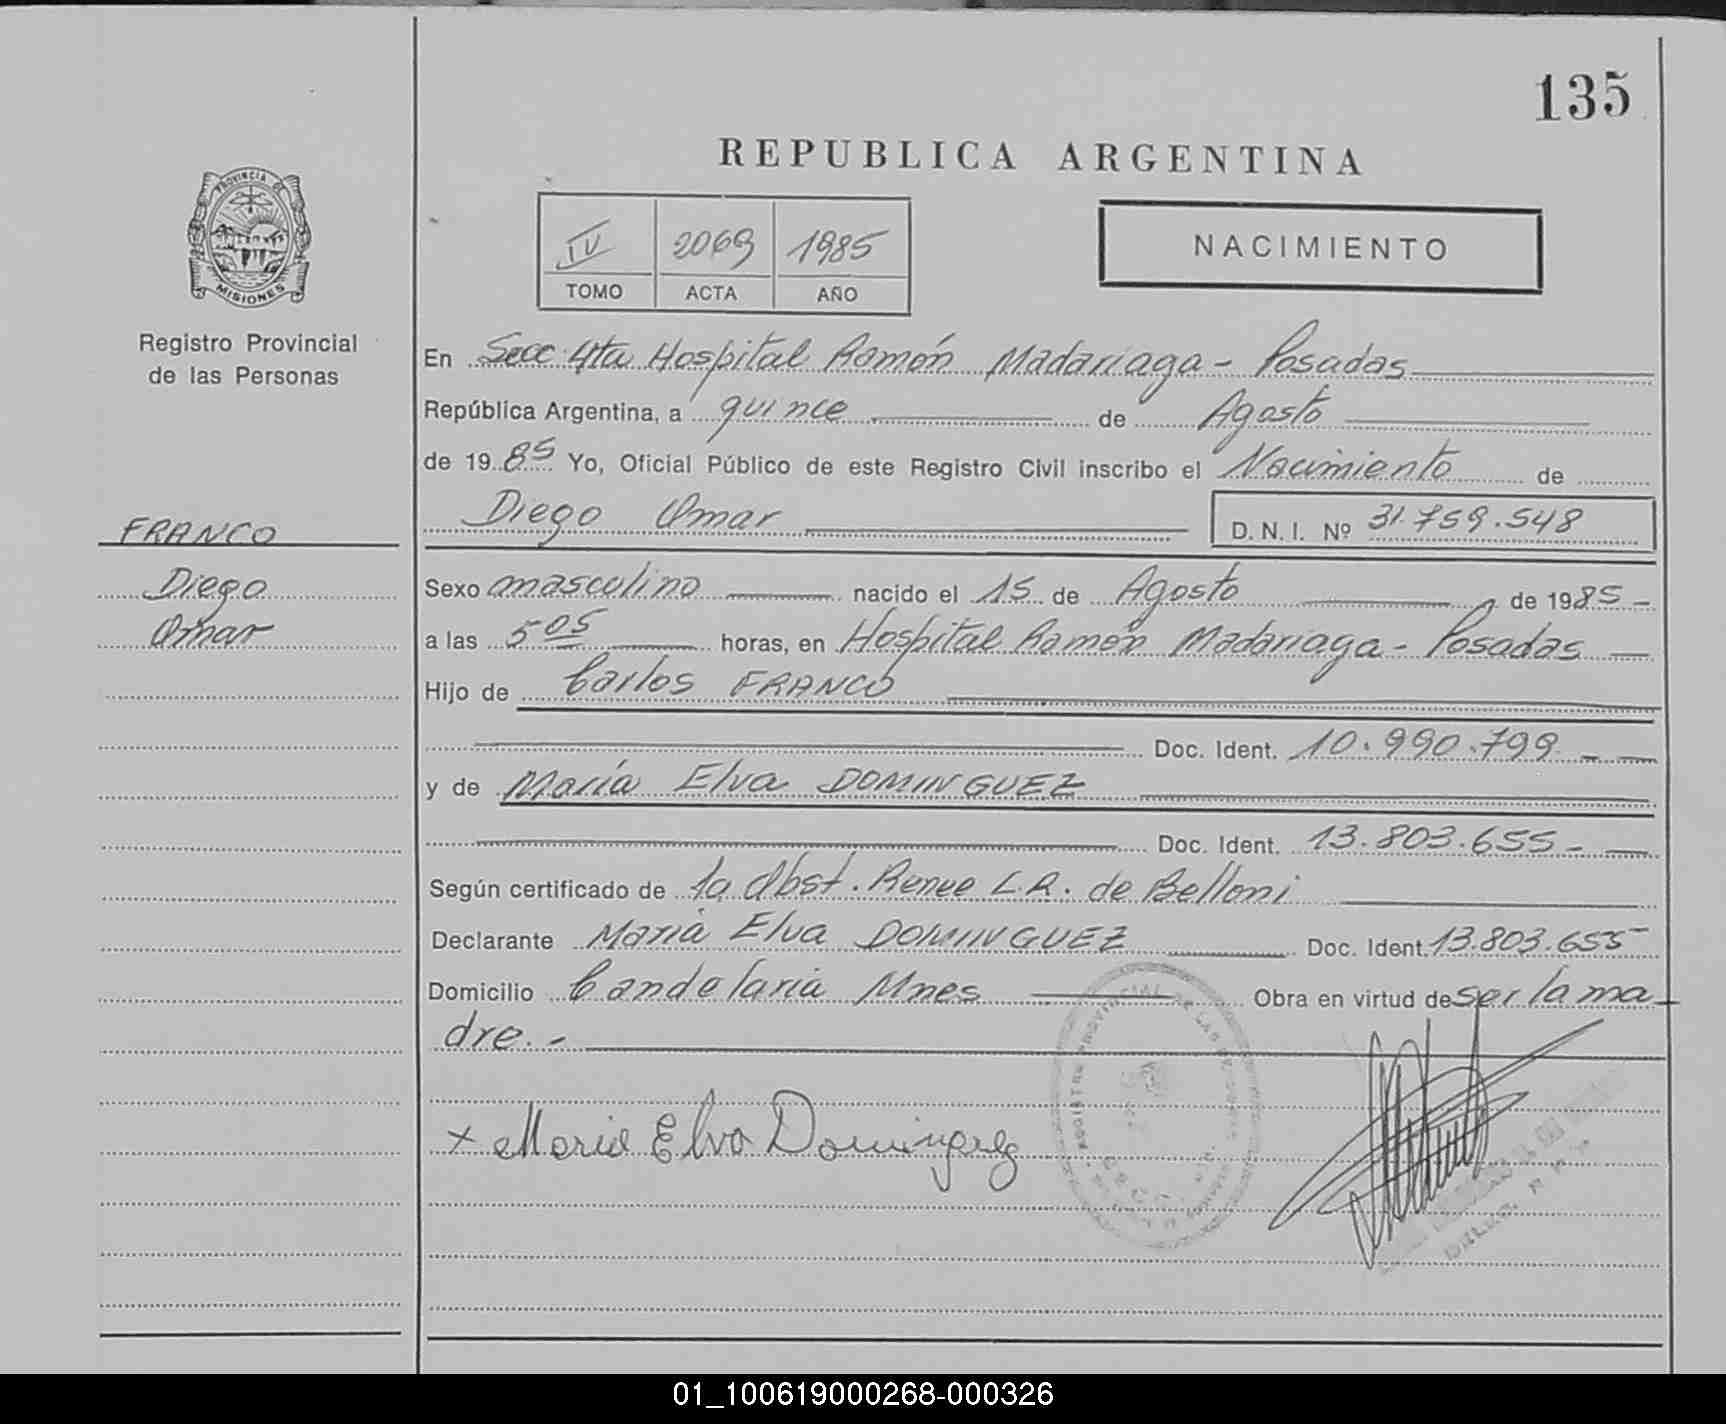 135
REPUBLICA ARGENTINA
PROVINCIA DE
MISIONES
Registro Provincial
de las Personas
IV 2069 1985
TOMO ACTA AÑO
NACIMIENTO
En Secc. 4ta Hospital Ramón Madariaga - Posadas
República Argentina, a quince de Agosto
de 1985 Yo, Oficial Público de este Registro Civil inscribo el Nacimiento de
Diego Omar D.N.I. Nº 31.759.548
FRANCO
Diego
Omar
Sexo masculino nacido el 15 de Agosto de 1985 -
a las 5 05 horas, en Hospital Ramón Madariaga - Posadas
Hijo de Carlos FRANCO
Doc. Ident. 10.990.799
y de María Elva DOMINGUEZ
Doc. Ident. 13.803.655 -
Según certificado de la Obst. Renee L.R. de Belloni
Declarante María Elva DOMINGUEZ Doc. Ident. 13.803.655
Domicilio Candelaria Mnes Obra en virtud de ser la ma
dre. -
x Maria Elva Dominguez
01_100619000268-000326